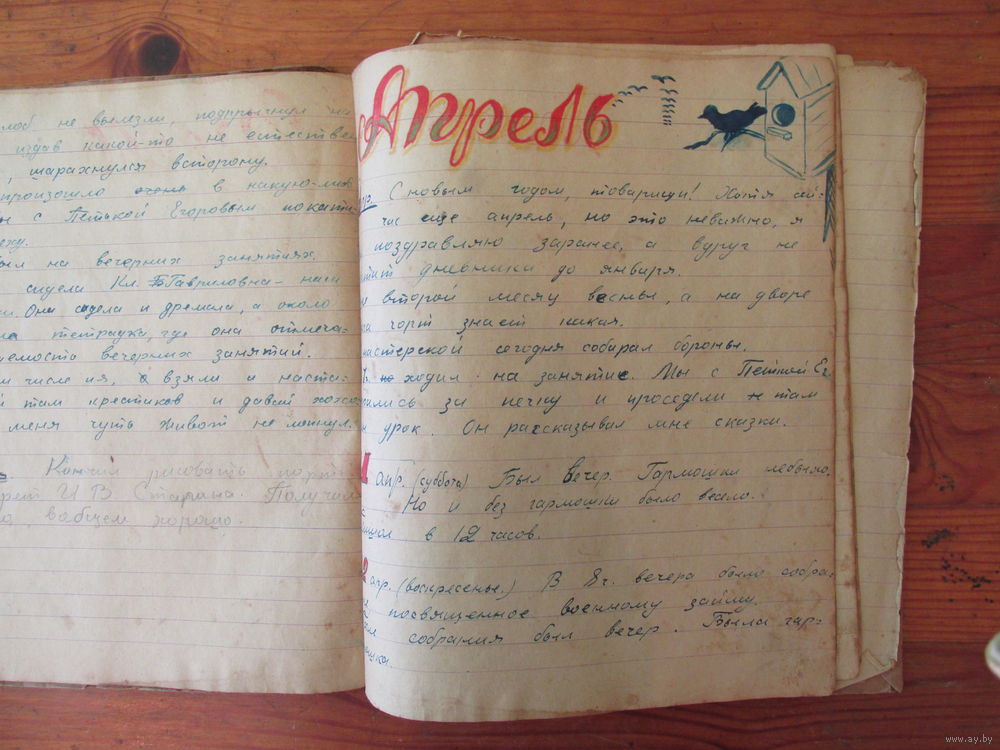 лоб не вылезли, подпрыгнул на
издав какой-то не естествен
, шарахнулся в сторону.
произошло очень в какую-либ
ы с Петькой Егоровым покати-
еху.
был на вечерних занятиях.
сидела Кл. Гавриловна - наш
Она сидела и дремала, а около
тетрадка, где она отмеча-
емость вечерних занятий.
числе и я, взяли и наста-
там крестиков и давай хохо
меня чуть живот не лопнул.
Кончил рисовать порт-
рет И В Сталина. Получил
о, вобщем хорошо.
Апрель
С новым годом, товарищи! Хотя сей-
час еще апрель, но это неважно, я
поздравляю заранее, а вдруг не
тит дневника до января.
второй месяц весны, а на дворе
чорт знает какая.
мастерской сегодня собирал бороны.
ходил на занятие. Мы с Петькой Ег.
ились за печку и просидели там
урок. Он рассказывал мне сказки.
1 апр. (суббота) Был вечер. Гармошки небыло.
Но и без гармошки было весело.
в 12 часов.
2 апр. (воскресенье.) В 8 г. вечера было собра-
посвященное военному займу.
собрания был вечер. Была гар-
мошка.
www.ay.by